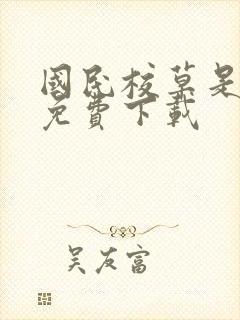 國民校草是
免費下載
吳友富